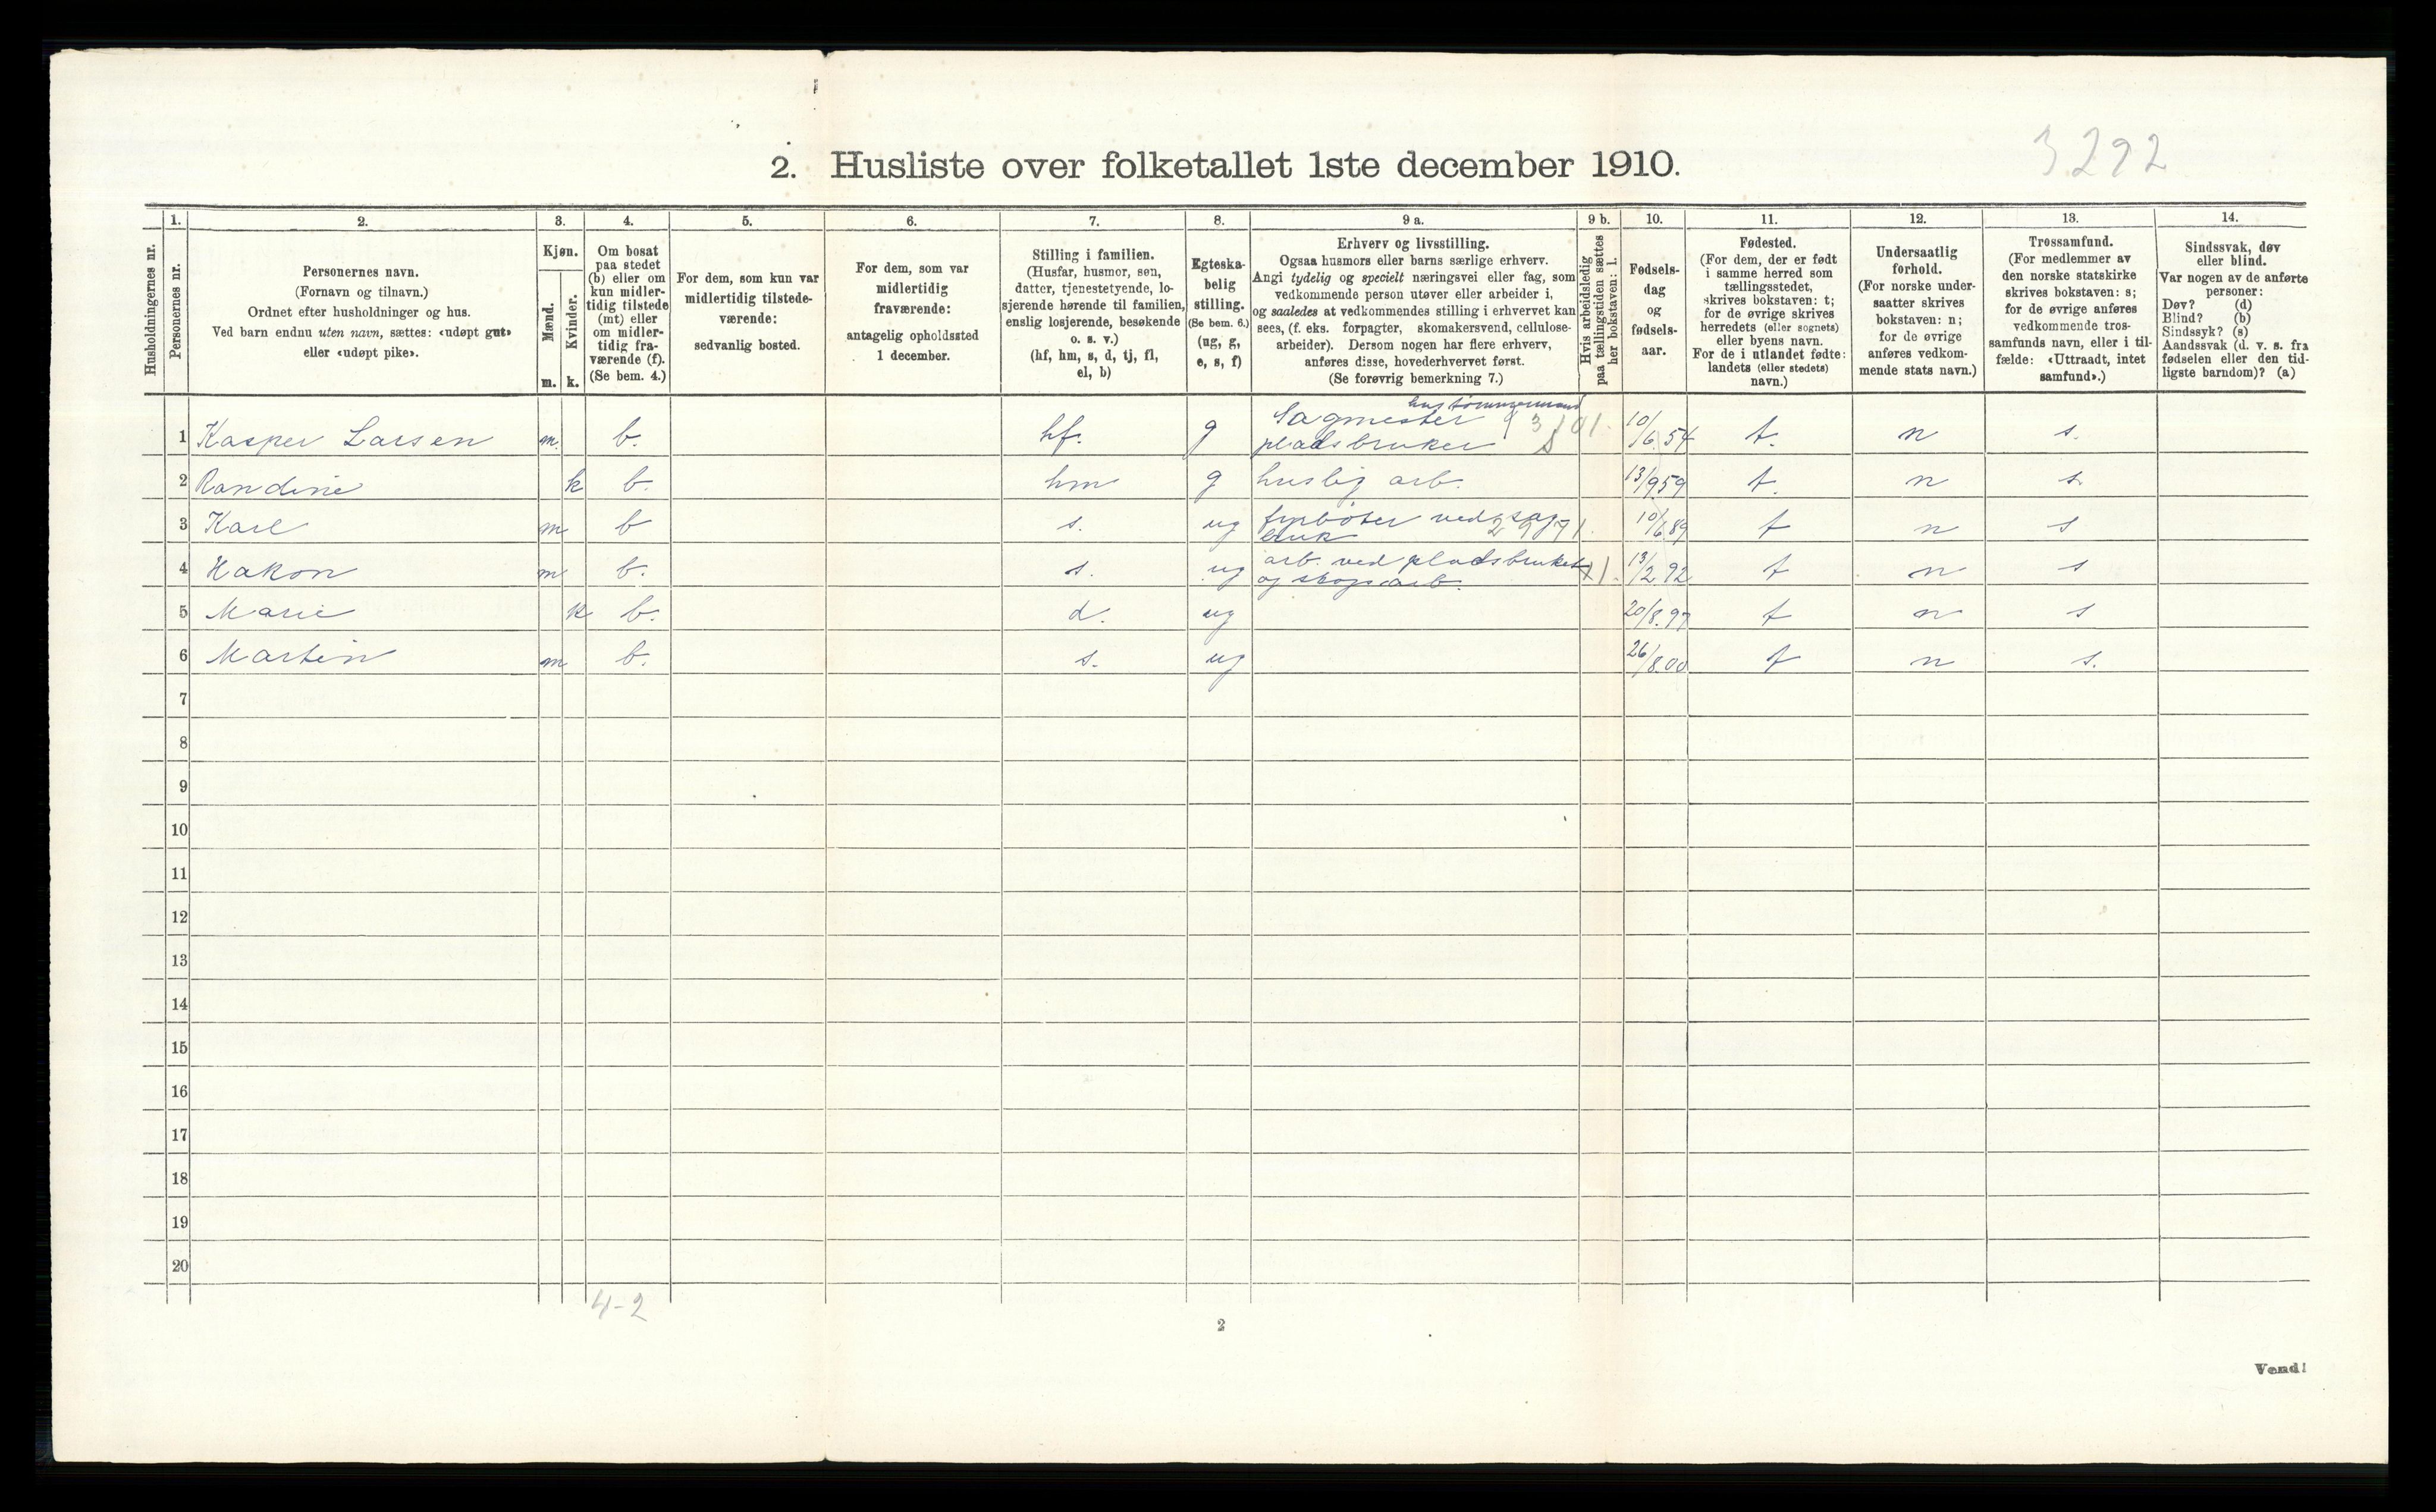 3.292
2. Husliste over folketallet 1ste december 1910.
1. 2. 3. 4. 5. 6. 7. 8. 9 a. 9 b. 10. 11. 12. 13. 14.
Husholdningernes nr.
Personernes nr.
Personernes navn.
(Fornavn og tilnavn.)
Ordnet efter husholdninger og hus.
Ved barn endnu uten navn, sættes: «udøpt gut»
eller «udøpt pike».
Kjøn.
Mænd.
Kvinder.
m. k.
Om bosat
paa stedet
(b) eller om
kun midler-
tidig tilstede
(mt) eller
om midler-
tidig fra-
værende (f).
(Se bem. 4.)
For dem, som kun var
midlertidig tilstede-
værende:
sedvanlig bosted.
For dem, som var
midlertidig
fraværende:
antagelig opholdssted
1 december.
Stilling i familien.
(Husfar, husmor, søn,
datter, tjenestetyende, lo-
sjerende hørende til familien,
enslig losjerende, besøkende
o. s. v.)
(hf, hm, s, d, tj, fl,
el, b)
Egteska-
belig
stilling.
(Se bem. 6.)
(ug, g,
e, s, f)
Erhverv og livsstilling.
Ogsaa husmors eller barns særlige erhverv.
Angi tydelig og specielt næringsvei eller fag, som
vedkommende person utøver eller arbeider i,
og saaledes at vedkommendes stilling i erhvervet kan
sees, (f. eks. forpagter, skomakersvend, cellulose-
arbeider). Dersom nogen har flere erhverv,
anføres disse, hovederhvervet først.
(Se forøvrig bemerkning 7.)
Hvis arbeidsledig
paa tællingstiden sættes
her bokstaven: l.
Fødsels-
dag
og
fødsels-
aar.
Fødested.
(For dem, der er født
i samme herred som
tællingsstedet,
skrives bokstaven: t;
for de øvrige skrives
herredets (eller sognets)
eller byens navn.
For de i utlandet fødte:
landets (eller stedets)
navn.)
Undersaatlig
forhold.
(For norske under-
saatter skrives
bokstaven: n;
for de øvrige
anføres vedkom-
mende stats navn.)
Trossamfund.
(For medlemmer av
den norske statskirke
skrives bokstaven: s;
for de øvrige anføres
vedkommende tros-
samfunds navn, eller i til-
fælde: «Uttraadt, intet
samfund».)
Sindssvak, døv
eller blind.
Var nogen av de anførte
personer:
Døv? (d)
Blind? (b)
Sindssyk? (s)
Aandssvak (d. v. s. fra
fødselen eller den tid-
ligste barndom)? (a)
1 Kasper Larsen m. b. hf. g Sagmester pladsbruker 10/6.54 t. n s.
2 Randine k b. hm g huslig arb. 13/9.59 t. n s.
3 Karl m b s. ug fyrbøter ved sagbruk 10/6.89 t n s
4 Hakon m b. s. ug arb. ved pladsbruket og skogsarb. 13/2.92 t n s
5 Marie k b. d. ug 20/8.97 t n s
6 Martin m b. s. ug 26/8.00 t n s.
7
8
9
10
11
12
13
14
15
16
17
18
19
20
4-2
2
Vend!